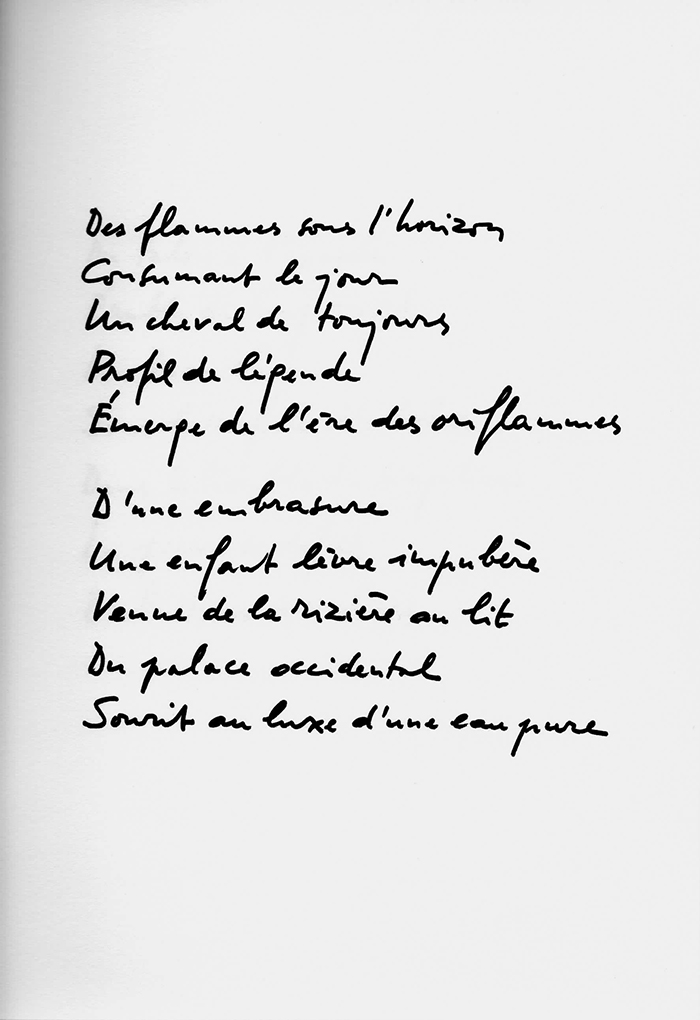 Des flammes sous l'horizon
Consumant le jour
Un cheval de toujours
Profil de légende
Émerge de l'ère des oriflammes
D'une embrasure
Une enfant lèvre impubère
Venue de la rizière au lit
Du palace occidental
Sourit au luxe d'une eau pure